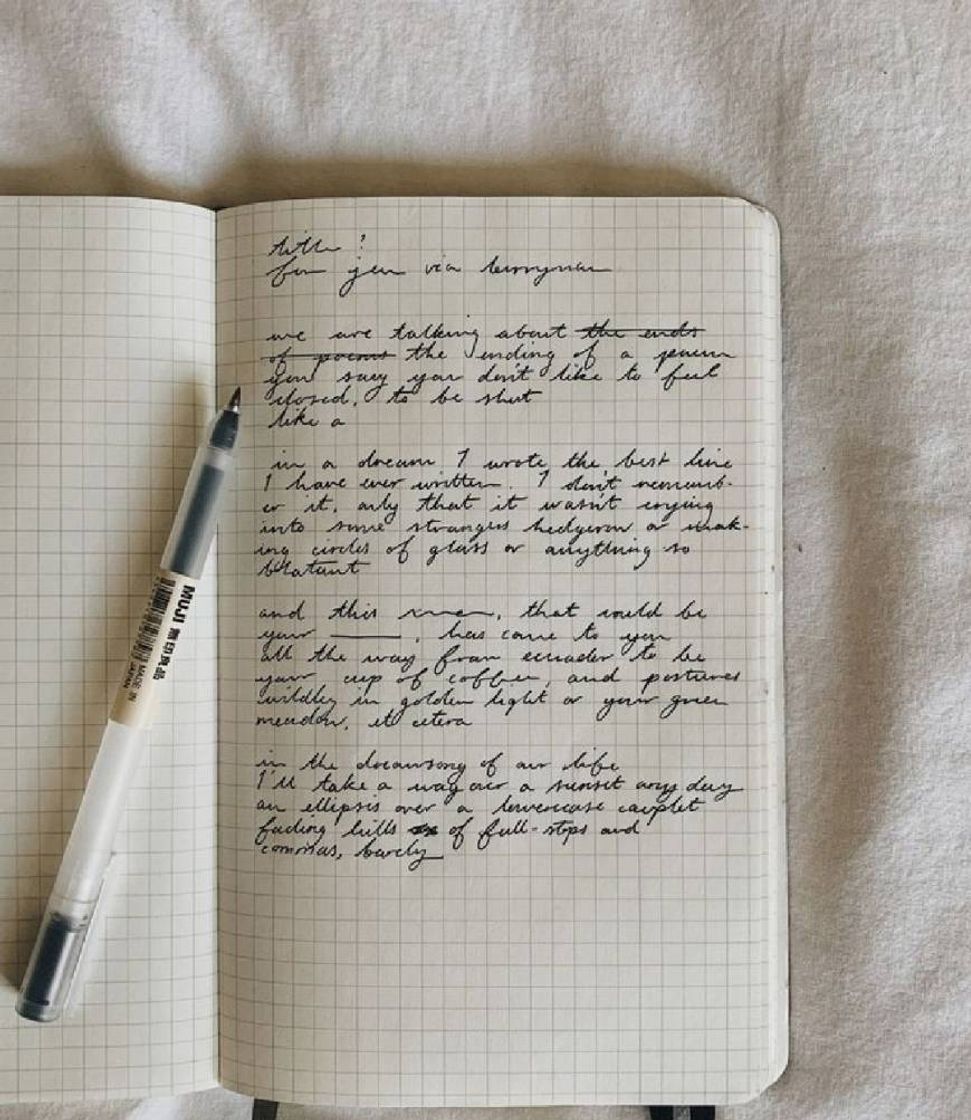 title?
for jen via berryman
we are talking about the ends
of poems the ending of a poem
you say you don't like to feel
closed, to be shut
like a
in a dream I wrote the best line
I have ever written. I don't rememb-
er it, only that it wasn't crying
into some strangers hedgerow or mak-
ing circles of glass or anything so
blatant
and this, that could be
your ______, has come to you
all the way from ecuador to be
your cup of coffee, and postures
wildly in golden light or your green
meadow, et cetera
in the dreamsong of our life
I'll take a wag over a sunset any day
an ellipsis over a lowercase couplet
fading hills of full-stops and
commas, barely
MUJI 無印良品
MADE IN
JAPAN